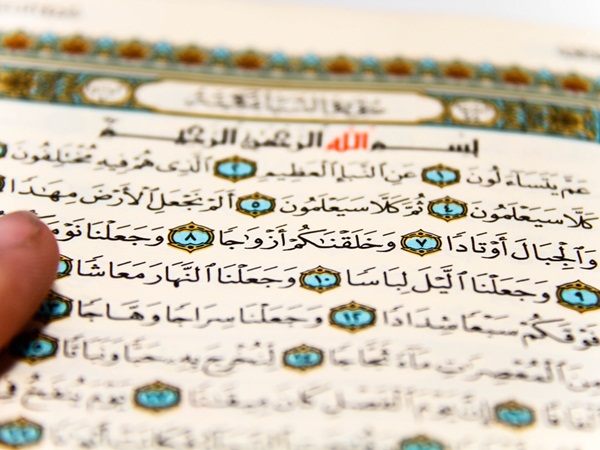 سورة النبأ مكية
بِسْمِ ٱللَّهِ ٱلرَّحْمَٰنِ ٱلرَّحِيمِ
عَمَّ يَتَسَآءَلُونَ ١ عَنِ ٱلنَّبَإِ ٱلْعَظِيمِ ٢ ٱلَّذِى هُمْ فِيهِ مُخْتَلِفُونَ
كَلَّا سَيَعْلَمُونَ ٤ ثُمَّ كَلَّا سَيَعْلَمُونَ ٥ أَلَمْ نَجْعَلِ ٱلْأَرْضَ مِهَٰدًا
وَٱلْجِبَالَ أَوْتَادًا ٧ وَخَلَقْنَٰكُمْ أَزْوَٰجًا ٨ وَجَعَلْنَا
٩ وَجَعَلْنَا ٱلَّيْلَ لِبَاسًا ١٠ وَجَعَلْنَا ٱلنَّهَارَ مَعَاشًا
فَوْقَكُمْ سَبْعًا شِدَادًا ١٢ وَجَعَلْنَا سِرَاجًا وَهَّاجًا
مِنَ ٱلْمُعْصِرَٰتِ مَآءً ثَجَّاجًا ١٤ لِّنُخْرِجَ بِهِۦ حَبًّا وَنَبَاتًا ١٥
إِنَّ يَوْمَ ٱلْفَصْلِ كَانَ مِيقَٰتًا ١٧ يَوْمَ يُنفَخُ